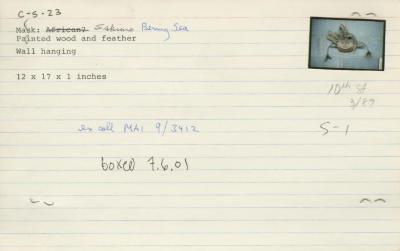 C-S-23
Mask: African? Eskimo Bering Sea
Painted wood and feather
Wall hanging
12 x 17 x 1 inches
10th St
3/89
S-1
ex coll MAI 9/3412
boxed 7.6.01